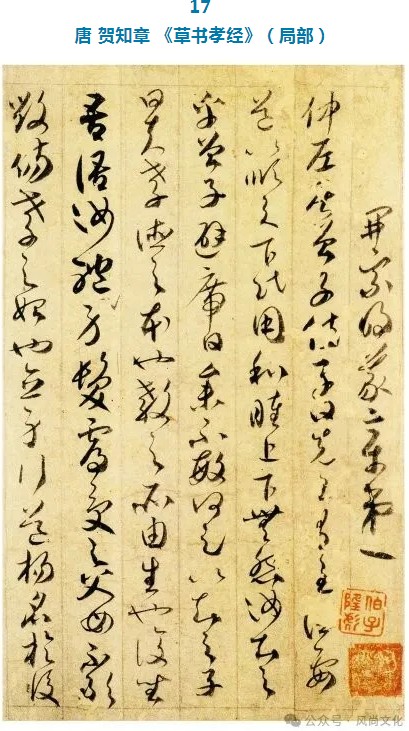 17
唐 贺知章 《草书孝经》（局部）
開宗明義章第一
仲尼居曾子侍子曰先王有至德要
道以順天下民用和睦上下無怨汝知之
乎曾子避席曰參不敏何足以知之子
曰夫孝德之本也教之所由生也復坐
吾語汝體身髮膚受之父母不敢
毀傷孝之始也立身行道揚名於後
公众号·风尚文化